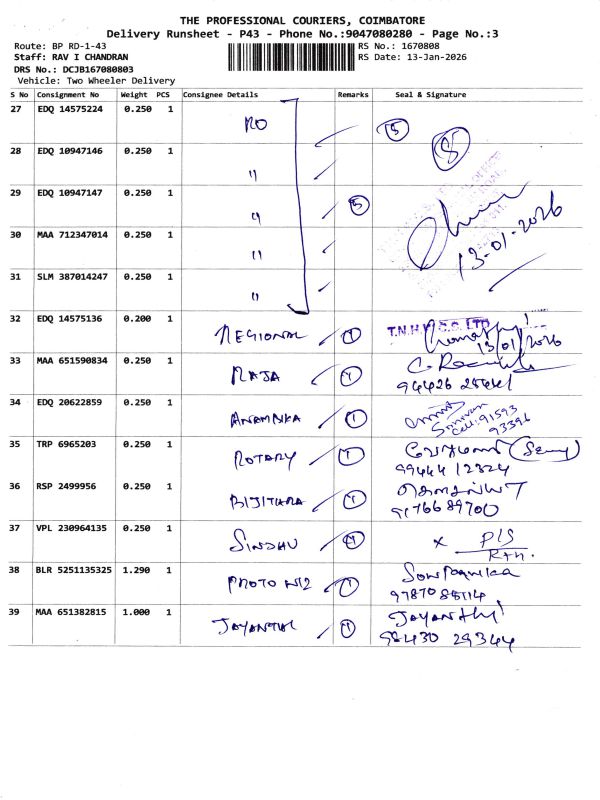 THE PROFESSIONAL COURIERS, COIMBATORE
Delivery Runsheet - P43 - Phone No.:9047080280 - Page No.:3
Route: BP RD-1-43
RS No.: 1670808
Staff: RAV I CHANDRAN
RS Date: 13-Jan-2026
DRS No.: DCJB167080803
Vehicle: Two Wheeler Delivery
S No Consignment No Weight PCS Consignee Details Remarks Seal & Signature
27 EDQ 14575224 0.250 1 RO 5
8
28 EDQ 10947146 0.250 1 "
29 EDQ 10947147 0.250 1 " 5
13-01-2026
30 MAA 712347014 0.250 1 "
31 SLM 387014247 0.250 1 "
32 EDQ 14575136 0.200 1 REGIONAL 1 T.N.H.
13/01/2026
33 MAA 651590834 0.250 1 RAJA 1
34 EDQ 20622859 0.250 1 1
Cell: 91593
93396
35 TRP 6965203 0.250 1 ROTARY 1
99444 12324
36 RSP 2499956 0.250 1 1
97766 89700
37 VPL 230964135 0.250 1 SINDHU 1 x P/S
38 BLR 5251135325 1.290 1 PROTO 1
39 MAA 651382815 1.000 1 1 Jayanthi
98430 29344